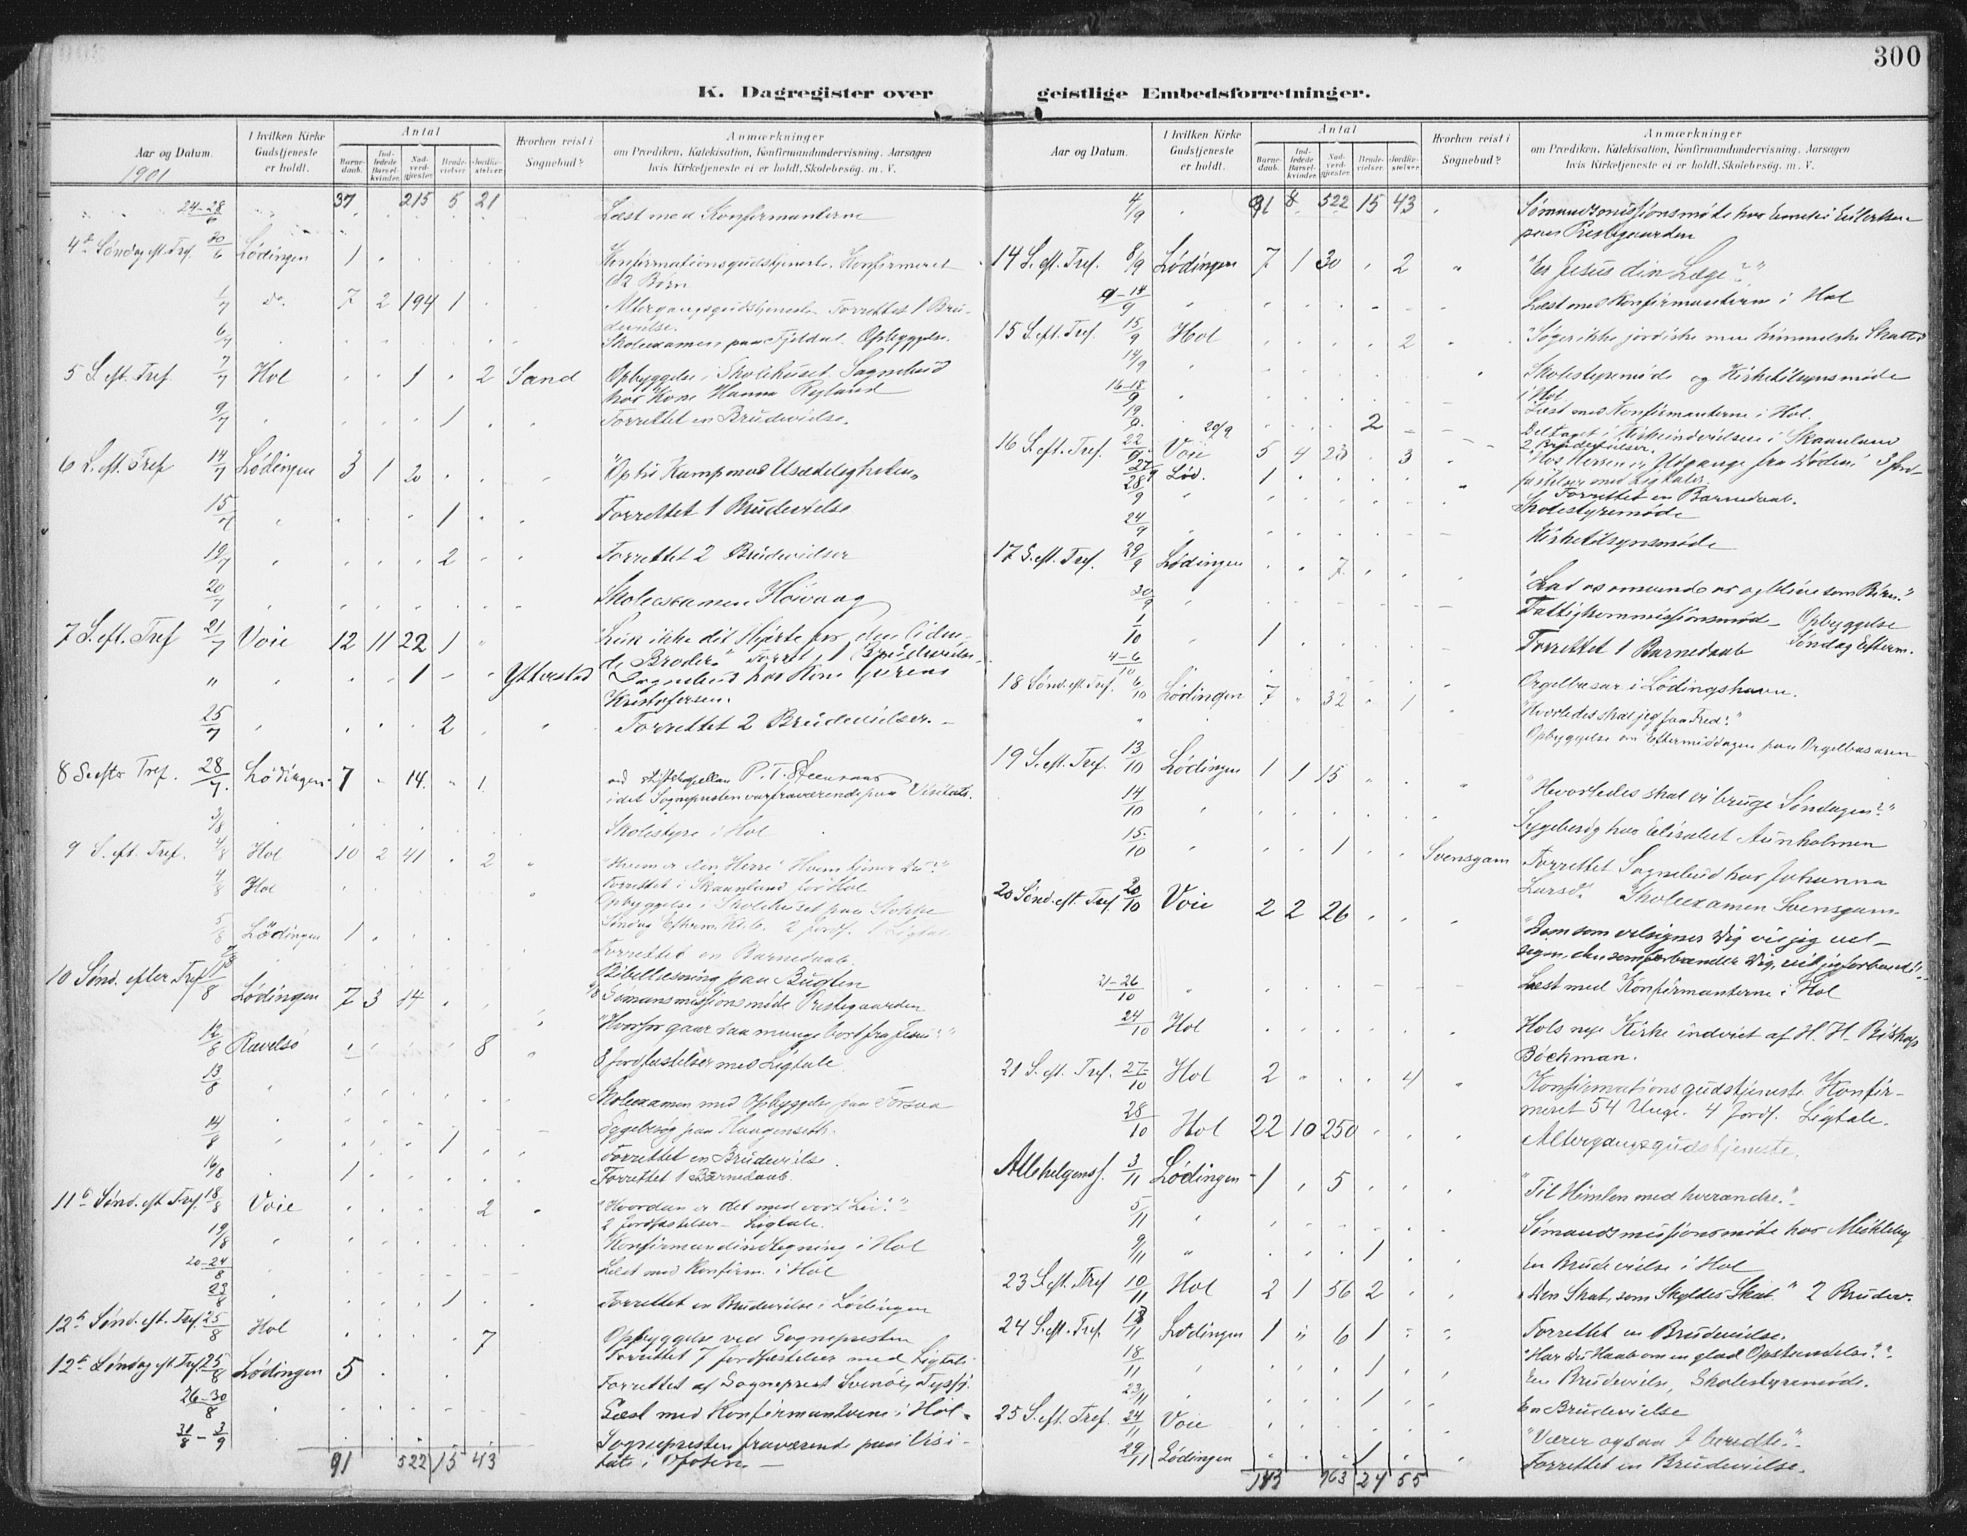 300
K. Dagregister over geistlige Embedsforretninger.
Aar og Datum.
1901
I hvilken Kirke Gudstjeneste er holdt.
Antal
Barnedaab.
Indledede Barselkvinder.
Nadverdgjester
Brudevielser.
Jordfæstelser
Hvorhen reist i Sognebud?
Anmærkninger
om Prædiken, Katekisation, Konfirmandundervisning. Aarsagen
hvis Kirketjeneste ei er holdt. Skolebesøg. m. V.
37 215 5 21
24-28/6 Læst med Konfirmanterne
4de Søndag eft. Tref. 30/6 Lødingen 1 Konfirmationsgudstjeneste. Konfirmeret
Børn
1/7 do. 7 2 194 1 Altergangsgudstjeneste Forrettet 1 Bru-
devielse.
6/7 Skoleexamen paa Fjeldal. Opbyggelse.
5 S. eft. Tref. 7/7 Hol 1 2 Sand Opbyggelse i Skolehuset. Sognebud
hos Kone Hanna
9/7 1 Forrettet en Brudevielse.
6 S. eft. Tref 14/7 Lødingen 3 1 20 "Op til Kamp mod Usædeligheden"
15/7 1 Forrettet 1 Brudevielse
19/7 2 Forrettet 2 Brudevielser
20/7 Skoleexamen Høivaag
7 S. eft. Tref 21/7 Voie 12 11 22 1 "Luk ikke dit Hjerte for den liden-
de Broder" Forret. 1 Brudevielse
" 1 Yttrestad Sognebud hos Kone
Kristofersen.
25/7 2 Forrettet 2 Brudevielser.
8 S efter Tref. 28/7 Lødingen 7 14 1 ved Stiftskapellan P. T. Steensaas
idet Sognepresten var fraværende paa Visitats.
3/8 Skolestyre i Hol
9 S. eft. Tref. 4/8 Hol 10 2 41 2 "Hvem er din Herre? Hvem tjener Du?"
4/8 Hol Forrettet i Skaanland for Hol
Opbyggelse i Skolehuset paa Stokke
5/8 Lødingen 1 Søndag Efterm.
Forrettet en Barnedaab.
Bibellæsning paa Bugten
10 Sønd. efter Tref 11/8 Lødingen 7 3 14 Sømansmissionsmøde Prestegaarden
"Hvorfor gaar saa mange bort fra Jesus?"
12/8 Ravelsø 8 8 Jordfæstelser med Ligtale.
13/8 Skoleexamen med Opbyggelse paa
14/8 1 Sygebesøg paa
Forrettet en Brudevielse.
16/8 1 Forrettet 1 Barnedaab.
11te Sønd. eft Tref. 18/8 Voie 2 "Hvordan er det med vort Liv?"
2 Jordfæstelser – Ligtale.
19/8 Konfirmandindtegning i Hol
20-24/8 Læst med Konfirm. i Hol
23/8 1 Forrettet en Brudevielse i Lødingen
12te Sønd. eft. Tref. 25/8 Hol 7 Opbyggelse ved Sognepresten
Forrettet 7 Jordfæstelser med Ligtale
12te Søndag eft Tref. 25/8 Lødingen 5 Forrettet af Sogneprest
26-30/8 Læst med Konfirmanterne i Hol.
31/8 – 3/9 Sognepresten fraværende paa Visi-
tats i Ofoten
91 522 15 43
Aar og Datum.
I hvilken Kirke Gudstjeneste er holdt.
Antal
Barnedaab.
Indledede Barselkvinder.
Nadverdgjester
Brudevielser.
Jordfæstelser
Hvorhen reist i Sognebud?
Anmærkninger
om Prædiken, Katekisation, Konfirmandundervisning. Aarsagen
hvis Kirketjeneste ei er holdt. Skolebesøg. m. V.
4/9 91 522 15 43 Sømandsmissionsmøde hos
paa Prestgaarden
14 S. eft. Tref. 8/9 Lødingen 7 1 30 2 "Er Jesus din Læge?"
9-14/9 Læst med Konfirmanterne i Hol
15 S. eft. Tref. 15/9 Hol 2 "Søger ikke jordiske men himmelske Skatte"
14/9 Skolestyremøde og Kirketilsynsmøde
i Hol
16-18/9 Læst med Konfirmanterne i Hol.
19/9 20/9 2 Deltaget i Kirkeindvielsen i Skaanland
2 Brudevielser.
16 S. eft. Tref. 22/9 Voie 5 4 23 3 "Hos Herren er Udgange fra Døden" 3 Jord-
fæstelser med Ligtaler.
27/9 Lød. 1 Forrettet en Barnedaab.
28/9 Skolestyremøde
24/9 Kirketilsynsmøde
17 S. eft. Tref. 29/9 Lødingen 7 "Lad os omvende os og blive som Børn."
30/9 Fattigkommissionsmød– Opbyggelse
Søndag Efterm.
1/10 1 Forrettet 1 Barnedaab
4-6/10 Orgelbasar i Lødingshavn.
18 Sønd. eft. Tref. 6/10 Lødingen 7 32 1 "Hvorledes skal jeg faa Fred?"
" Opbyggelse om Eftermiddagen paa Orgelbasaren
19 S. eft. Tref. 13/10 Lødingen 1 1 15 "Hvorledes skal vi bruge Søndagen?"
14/10 Sygebesøg hos Elisabet Aunholmen
15/10 1 Svensgam Forrettet Sognebud hos Johanna
Larsd. Skoleexamen Svensgam
20 Sønd. eft. Tref. 20/10 Voie 2 2 26 "Dem som velsigner Dig vil jeg vel-
signe, den som forbander Dig, vil jeg forbande"
21-26/10 Læst med Konfirmanterne i Hol
24/10 Hol Hols nye Kirke indviet af H. H. Biskop
Bøckman.
21 S. eft. Tref. 27/10 Hol 2 4 Konfirmationsgudstjeneste Konfir-
meret 54 Unge. 4 Jordf. Ligtale.
28/10 Hol 22 10 250 Altergangsgudstjeneste.
Allehelgensf. 3/11 Lødingen 1 5 "Til Himlen med hverandre."
5/11 Sømandsmissionsmøde hos Meckleby
9/11 1 En Brudevielse i Hol
23 S. eft. Tref 10/11 Hol 2 1 56 2 "Den Skat, som Skyldes Skat" 2 Brudev.
24 S. eft. Tref. Lødingen 1 " 6 1 Forrettet en Brudevielse.
"Har Du Haab om en glad Opstandelse?"
18/11 1 En Brudevielse, Skolestyremøde.
23/11 1 En Brudevielse
25 S. eft Tref. 24/11 Voie "Værer ogsaa I beredte".
29/11 Lødingen 1 Forrettet en Brudevielse.
143 963 24 55